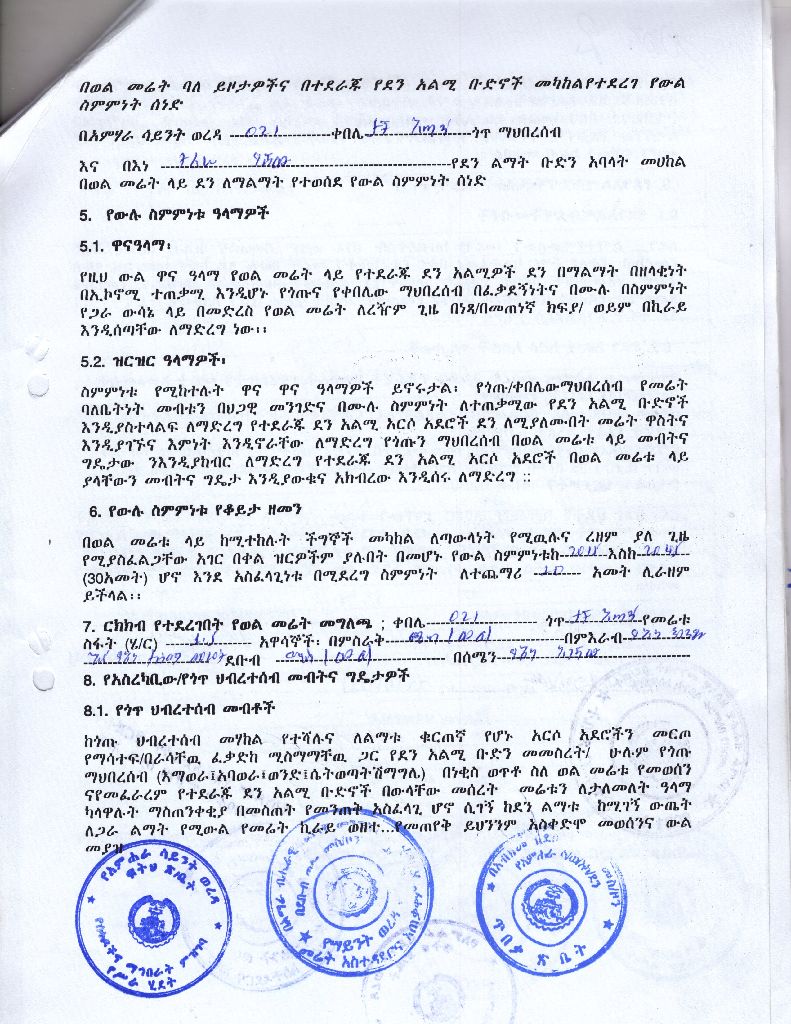 በወል መሬት ባለ ይዞታዎችና በተደራጁ የደን አልሚ ቡድኖች መካከልየተደረገ የውል
ስምምነት ሰነድ
በአምሃራ ሳይንት ወረዳ 021 ቀበሌ ጎጥ ማህበረሰብ
እና በእነ የደን ልማት ቡድን አባላት መሀከል
በወል መሬት ላይ ደን ለማልማት የተወሰደ የውል ስምምነት ሰነድ
5. የውሉ ስምምነቱ ዓላማዎች
5.1. ዋናዓላማ፡
የዚህ ውል ዋና ዓላማ የወል መሬት ላይ የተደራጁ ደን አልሚዎች ደን በማልማት በዘላቂነት
በኢኮኖሚ ተጠቃሚ እንዲሆኑ የጎጡና የቀበሌው ማህበረሰብ በፈቃደኝነትና በሙሉ በስምምነት
የጋራ ውሳኔ ላይ በመድረስ የወል መሬት ለረዥም ጊዜ በነፃ/በመጠነኛ ክፍያ/ ወይም በኪራይ
እንዲሰጣቸው ለማድረግ ነው፡፡
5.2. ዝርዝር ዓላማዎች፡
ስምምነቱ የሚከተሉት ዋና ዋና ዓላማዎች ይኖሩታል፡ የጎጡ/ቀበሌውማህበረሰብ የመሬት
ባለቤትነት መብቱን በህጋዊ መንገድና በሙሉ ስምምነት ለተጠቃሚው የደን አልሚ ቡድኖች
እንዲያስተላልፍ ለማድረግ የተደራጁ ደን አልሚ አርሶ አደሮች ደን ለሚያለሙበት መሬት ዋስትና
እንዲያገኙና እምነት እንዲኖራቸው ለማድረግ የጎጡን ማህበረሰብ በወል መሬቱ ላይ መብትና
ግዴታው ንእንዲያከብር ለማድረግ የተደራጁ ደን አልሚ አርሶ አደሮች በወል መሬቱ ላይ
ያላቸውን መብትና ግዴታ እንዲያውቁና አክብረው እንዲሰሩ ለማድረግ ::
6. የውሉ ስምምነቱ የቆይታ ዘመን
በወል መሬቱ ላይ ከሚተከሉት ችግኞች መካከል ለጣውላነት የሚዉሉና ረዘም ያለ ጊዜ
የሚያስፈልጋቸው አገር በቀል ዝርዎችም ያሉበት በመሆኑ የውል ስምምነቱከ እስከ
(30አመት) ሆኖ እንደ አስፈላጊነቱ በሚደረግ ስምምነት ለተጨማሪ 10 አመት ሊራዘም
ይችላል፡፡
7. ርክክብ የተደረገበት የወል መሬት መግለጫ ; ቀበሌ 021 ጎጥ የመሬቱ
ስፋት (ሄ/ር) አዋሳኞች፡ በምስራቅ በምእራብ
ደቡብ በሰሜን
8. የአስረካቢው/የጎጥ ህብረተሰብ መብትና ግዴታዎች
8.1. የጎጥ ህብረተሰብ መብቶች
ከጎጡ ህብረተሰብ መሃከል የተሻሉና ለልማቱ ቁርጠኛ የሆኑ አርሶ አደሮችን መርጦ
የማሳተፍ/በራሳቸዉ ፈቃድከ ሚስማማቸዉ ጋር የደን አልሚ ቡድን መመስረት/ ሁሉም የጎጡ
ማህበረሰብ (እማወራ፤አባወራ፤ወንድ፤ሴትወጣትሽማግሌ) በነቂስ ወጥቶ ስለ ወል መሬቱ የመወሰን
ናየመፈራረም የተደራጁ ደን አልሚ ቡድኖች በውላቸው መሰረት መሬቱን ለታለመለት ዓላማ
ካላዋሉት ማስጠንቀቂያ በመስጠት የመንጠቅ አስፈላጊ ሆኖ ሲገኝ ከደን ልማቱ ከሚገኝ ውጤት
ለጋራ ልማት የሚውል የመሬት ኪራይ ወዘተ...የመጠየቅ ይህንንም አስቀድሞ መወሰንና ውል
መያዝ
የአምሐራ ሳይንት ወረዳ
ፍትህ ጽ/ቤት
የሥራ ሂደት
መሬት አስተዳደርና
ጥበቃ ጽ ቤት